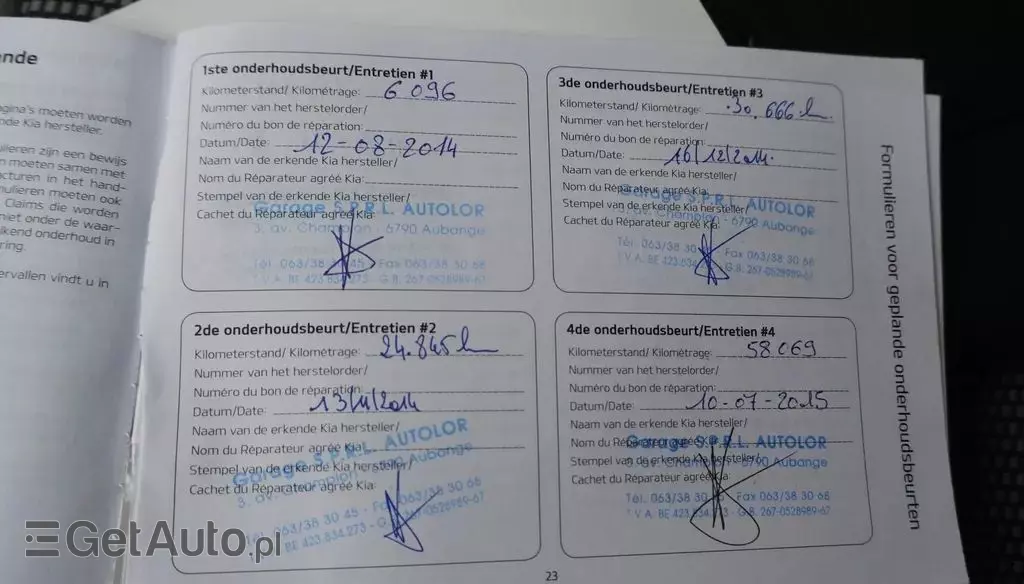 nde
gina's moeten worden
nde Kia hersteller.
ulieren zijn een bewijs
n moeten samen met
cturen in het hand-
mulieren moeten ook
Claims die worden
niet onder de waar-
kend onderhoud in
ring.
ervallen vindt u in
1ste onderhoudsbeurt/Entretien #1
Kilometerstand/ Kilométrage: 6 096
Nummer van het herstelorder/
Numéro du bon de réparation:
Datum/Date: 12-08-2014
Naam van de erkende Kia hersteller/
Nom du Réparateur agréé Kia:
Stempel van de erkende Kia hersteller/
Cachet du Réparateur agréé Kia:
Garage S.P.R.L. AUTOLOR
3, av. Champion - 6790 Aubange
Tél. 063/38 30 45 - Fax 063/38 30 68
T.V.A. BE 423.834.273 - G.B. 267-0528989-67
2de onderhoudsbeurt/Entretien #2
Kilometerstand/ Kilométrage: 24.845
Nummer van het herstelorder/
Numéro du bon de réparation:
Datum/Date: 13/11/2014
Naam van de erkende Kia hersteller/
Nom du Réparateur agréé Kia:
Stempel van de erkende Kia hersteller/
Cachet du Réparateur agréé Kia:
Garage S.P.R.L. AUTOLOR
3, av. Champion - 6790 Aubange
Tél. 063/38 30 45 - Fax 063/38 30 68
T.V.A. BE 423.834.273 - G.B. 267-0528989-67
3de onderhoudsbeurt/Entretien #3
Kilometerstand/ Kilométrage: 30.666
Nummer van het herstelorder/
Numéro du bon de réparation:
Datum/Date: 16/12/2014
Naam van de erkende Kia hersteller/
Nom du Réparateur agréé Kia:
Stempel van de erkende Kia hersteller/
Cachet du Réparateur agréé Kia:
Garage S.P.R.L. AUTOLOR
3, av. Champion - 6790 Aubange
Tél. 063/38 30 - Fax 063/38 30 68
T.V.A. BE 423.834.273 - G.B. 267-0528989-67
4de onderhoudsbeurt/Entretien #4
Kilometerstand/ Kilométrage: 58069
Nummer van het herstelorder/
Numéro du bon de réparation:
Datum/Date: 10-07-2015
Naam van de erkende Kia hersteller/
Nom du Réparateur agréé Kia:
Stempel van de erkende Kia hersteller/
Cachet du Réparateur agréé Kia:
Garage S.P.R.L. AUTOLOR
3, av. Champion - 6790 Aubange
Tél. 063/38 30 - Fax 063/38 30 68
T.V.A. BE 423.834.273 - G.B. 267-0528989-67
Formulieren voor geplande onderhoudsbeurten
23
GetAuto.pl